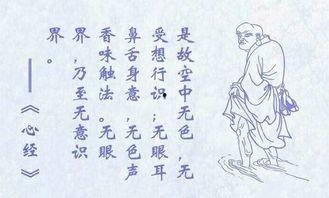 是故空中无色，无
受想行识；无眼耳
鼻舌身意，无色声
香味触法。无眼
界，乃至无意识
界。
——《心经》